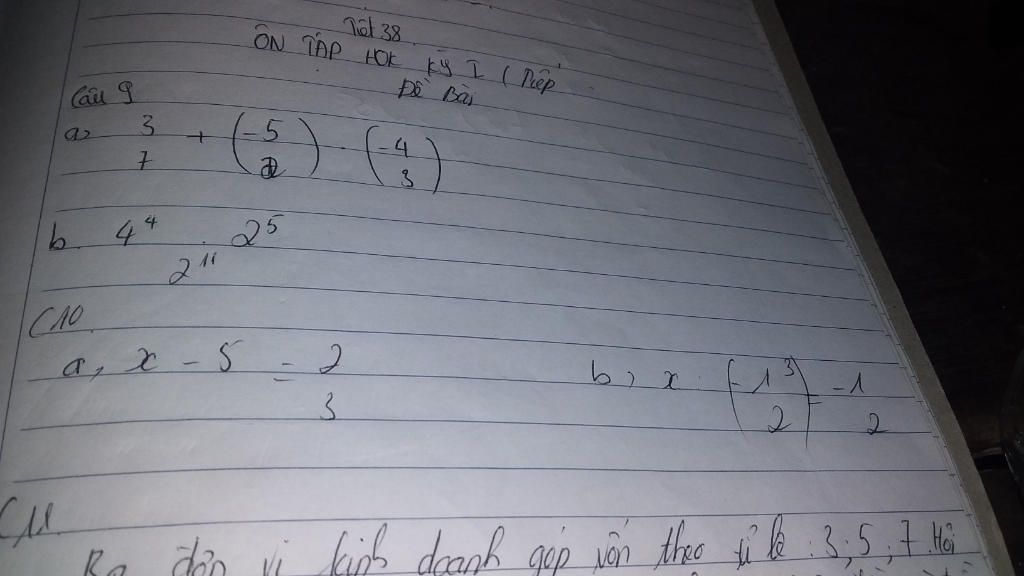 Tiết 38.
ÔN TẬP HỌC KỲ I (Tiếp
Đề Bài
Câu 9
a, 3/7 + (-5/2) . (-4/3)
b. 4^4 . 2^5 / 2^11
C10.
a, x - 5 = 2/3
b, x : (-1/2)^3 = -1/2
C11.
Ba đơn vị kinh doanh góp vốn theo tỉ lệ : 3; 5; 7. Hỏi